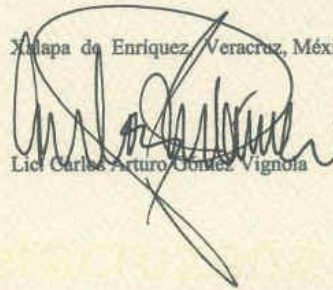 Xalapa de Enríquez, Veracruz, Méxi
Lic. Carlos Arturo Gómez Vignola